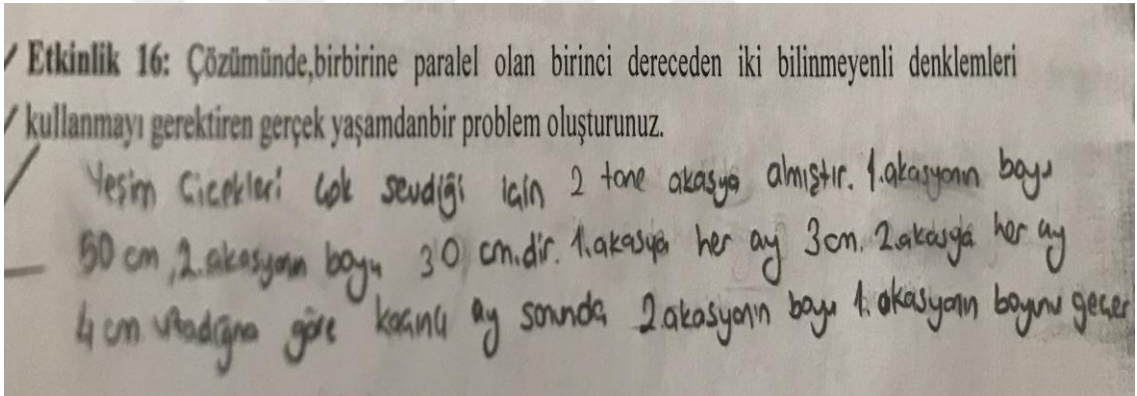 Etkinlik 16: Çözümünde,birbirine paralel olan birinci dereceden iki bilinmeyenli denklemleri
kullanmayı gerektiren gerçek yaşamdanbir problem oluşturunuz.
Yeşim Çiçekleri çok sevdiği için 2 tane akasya almıştır. 1.akasyanın boyu
50 cm, 2.akasyanın boyu 30 cm.dir. 1.akasya her ay 3cm. 2.akasya her ay
4 cm uzadığına göre kaçıncı ay sonunda 2.akasyanın boyu 1. akasyanın boyunu geçer